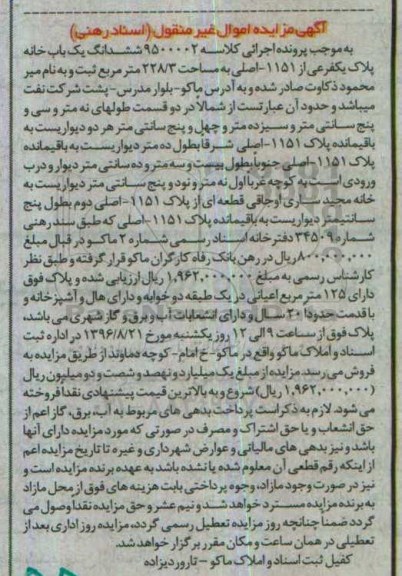 آگهی مزایده اموال غیر منقول (اسناد رهنی)
به موجب پرونده اجرائی کلاسه ۹۵۰۰۰۰۲ ششدانگ یک باب خانه
پلاک یکفرعی از ۱۱۵۱-اصلی به مساحت ۲۲۸/۳ متر مربع ثبت و به نام میر
محمود ذکاوت صادر شده و به آدرس ماکو-بلوار مدرس-پشت شرکت نفت
میباشد و حدود آن عبارتست از شمالاً در دو قسمت طولهای نه متر و سی و
پنج سانتی متر و سیزده متر و چهل و پنج سانتی متر هر دو دیواریست به
باقیمانده پلاک ۱۱۵۱-اصلی شرقا بطول ده متر دیواریست به باقیمانده
پلاک ۱۱۵۱-اصلی جنوبا بطول بیست و سه متر و ده سانتی متر دیوار و درب
ورودی است به کوچه غربا اول نه متر و نود و پنج سانتی متر دیواریست به
خانه مجید ساری اوجاقی قطعه ای از پلاک ۱۱۵۱-اصلی دوم بطول پنج
سانتیمتر دیواریست به باقیمانده پلاک ۱۱۵۱-اصلی که طبق سند رهنی
شماره ۳۴۵۰۹ دفترخانه اسناد رسمی شماره ۲ ماکو در قبال مبلغ
۸۰۰,۰۰۰,۰۰۰ریال در رهن بانک رفاه کارگران ماکو قرار گرفته و طبق نظر
کارشناس رسمی به مبلغ ۱,۹۶۲,۰۰۰,۰۰۰ ریال ارزیابی شده و پلاک فوق
دارای ۱۲۵ متر مربع اعیانی در یک طبقه دو خوابه و دارای هال و آشپزخانه و
با قدمت حدودا ۲۰ سال و دارای انشعابات آب و برق و گاز شهری می باشد،
پلاک فوق از ساعت ۹ الی ۱۲ روز یکشنبه مورخ ۱۳۹۶/۸/۲۱ در اداره ثبت
اسناد و املاک ماکو واقع در ماکو-خ امام-کوچه دماوند از طریق مزایده به
فروش می رسد. مزایده از مبلغ یک میلیارد و نهصد و شصت و دو میلیون ریال
(۱,۹۶۲,۰۰۰,۰۰۰ ریال) شروع و به بالاترین قیمت پیشنهادی نقداً فروخته
می شود. لازم به ذکر است پرداخت بدهی های مربوط به آب، برق، گاز اعم از
حق انشعاب و یا حق اشتراک و مصرف در صورتی که مورد مزایده دارای آنها
باشد و نیز بدهی های مالیاتی و عوارض شهرداری و غیره تا تاریخ مزایده اعم
از اینکه رقم قطعی آن معلوم شده یا نشده باشد به عهده برنده مزایده است و
نیز در صورت وجود مازاد، وجوه پرداختی بابت هزینه های فوق از محل مازاد
به برنده مزایده مسترد خواهد شد و نیم عشر و حق مزایده نقدا وصول می
گردد ضمنا چنانچه روز مزایده تعطیل رسمی گردد، مزایده روز اداری بعد از
تعطیلی در همان ساعت و مکان مقرر برگزار خواهد شد.
کفیل ثبت اسناد و املاک ماکو – تاروردیزاده